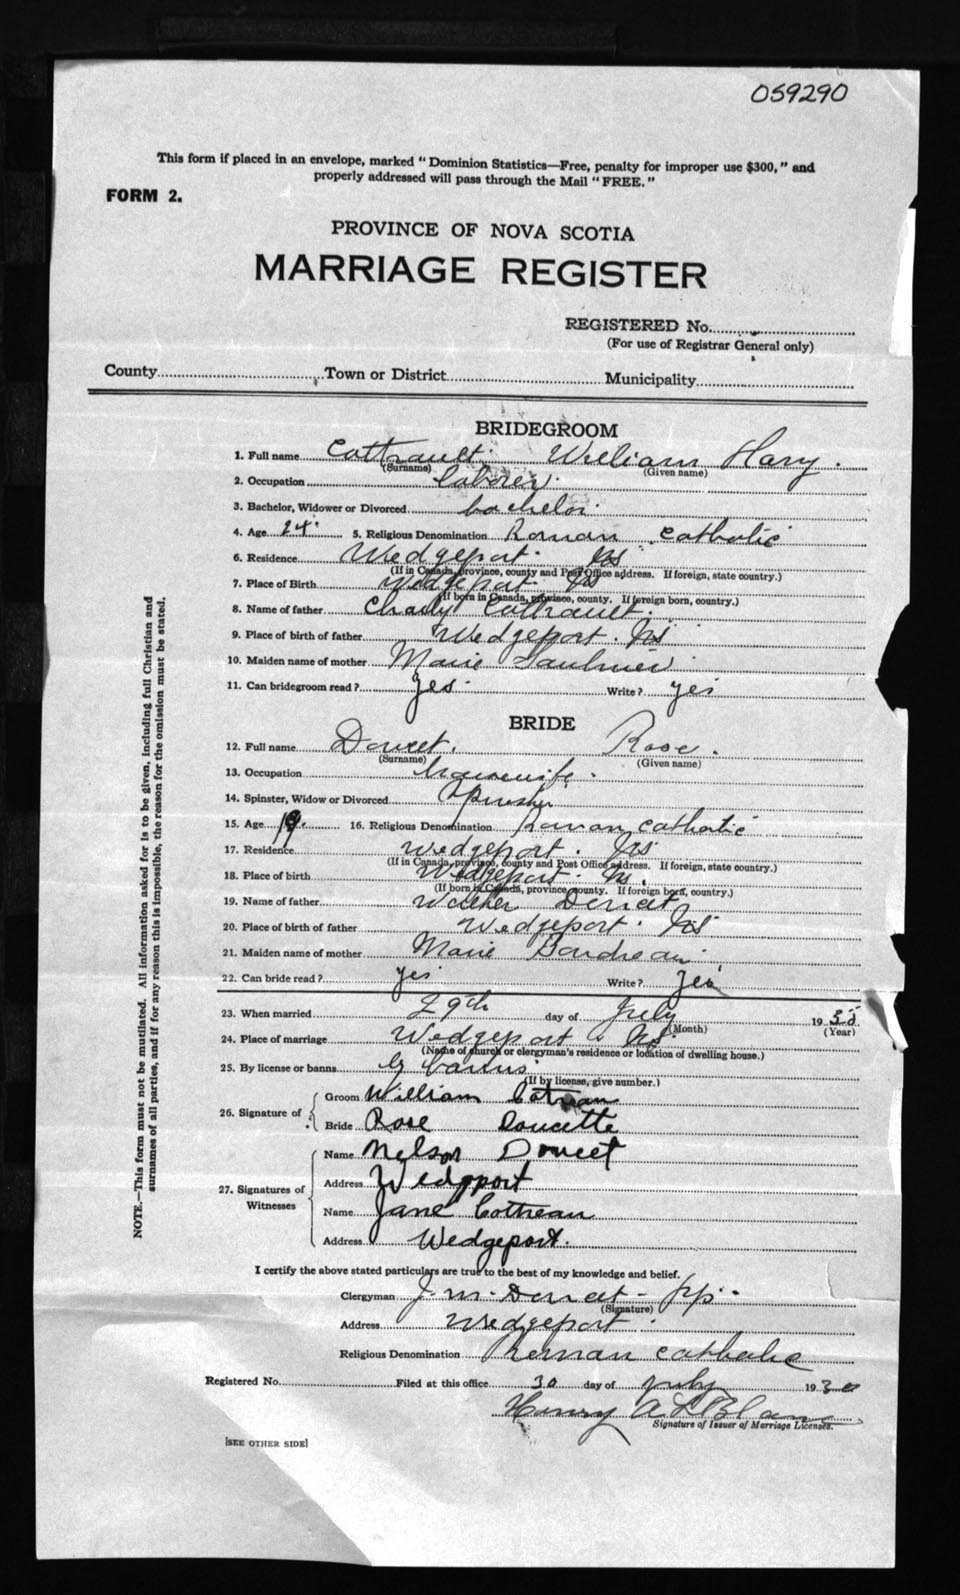 059290
This form if placed in an envelope, marked "Dominion Statistics—Free, penalty for improper use $300," and
properly addressed will pass through the Mail "FREE."
FORM 2.
PROVINCE OF NOVA SCOTIA
MARRIAGE REGISTER
REGISTERED No.
(For use of Registrar General only)
County Town or District Municipality
BRIDEGROOM
1. Full name Cottrault. William Hary.
(Surname) (Given name)
2. Occupation laborer.
3. Bachelor, Widower or Divorced bachelor.
4. Age 24. 5. Religious Denomination Roman Catholic
6. Residence Wedgeport. NS
(If in Canada, province, county and Post Office address. If foreign, state country.)
7. Place of Birth Wedgeport. NS
(If born in Canada, province, county. If foreign born, country.)
8. Name of father Charly Cottrault.
9. Place of birth of father Wedgeport. NS
10. Maiden name of mother Marie Saulnier.
11. Can bridegroom read? yes. Write? yes
BRIDE
12. Full name Doucet. Rose.
(Surname) (Given name)
13. Occupation housewife.
14. Spinster, Widow or Divorced
15. Age 19. 16. Religious Denomination Roman Catholic
17. Residence Wedgeport. NS
(If in Canada, province, county and Post Office address. If foreign, state country.)
18. Place of birth Wedgeport. NS.
(If born in Canada, province, county. If foreign born, country.)
19. Name of father Doucet
20. Place of birth of father Wedgeport. NS
21. Maiden name of mother Marie Boudreau
22. Can bride read? yes Write? yes
23. When married 29th day of July 1930
(Month) (Year)
24. Place of marriage Wedgeport NS
(Name of church or clergyman's residence or location of dwelling house.)
25. By license or banns by banns
(If by license, give number.)
26. Signature of
Groom William Cotreau
Bride Rose Doucette
27. Signatures of Witnesses
Name Nelson Doucet
Address Wedgport
Name Jane Cottreau
Address Wedgeport.
I certify the above stated particulars are true to the best of my knowledge and belief.
Clergyman J. M. Doucet - pp.
(Signature)
Address Wedgeport.
Religious Denomination Roman Catholic
Registered No. Filed at this office 30 day of July 1930
Henry A LeBlanc
Signature of Issuer of Marriage Licenses.
[SEE OTHER SIDE]
NOTE.—This form must not be mutilated. All information asked for is to be given, including full Christian and
surnames of all parties, and if for any reason this is impossible, the reason for the omission must be stated.